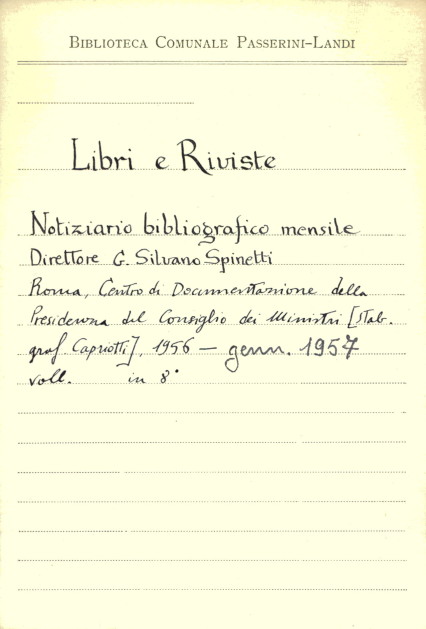 BIBLIOTECA COMUNALE PASSERINI-LANDI
Libri e Riviste
Notiziario bibliografico mensile
Direttore G. Silvano Spinetti
Roma, Centro di Documentazione della
Presidenza del Consiglio dei Ministri [Stab.
graf. Capriotti], 1956 — genn. 1957
voll. in 8°